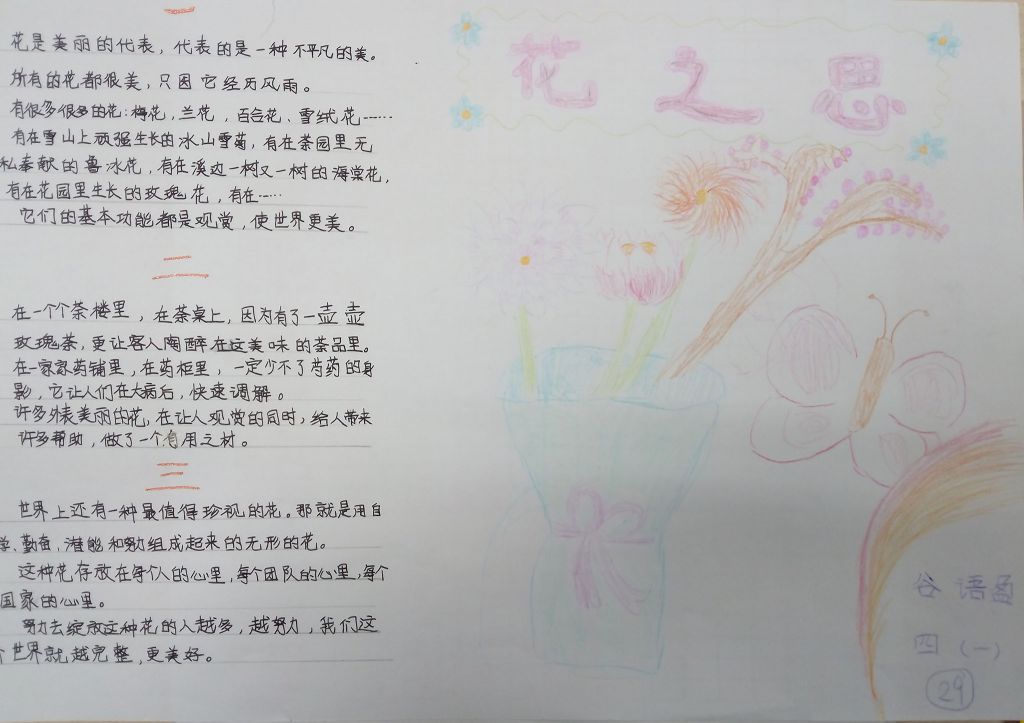 一
花是美丽的代表，代表的是一种不平凡的美。
所有的花都很美，只因它经历风雨。
有很多很多的花：梅花，兰花，百合花、雪绒花……
有在雪山上顽强生长的冰山雪菊，有在茶园里无
私奉献的鲁冰花，有在溪边一树又一树的海棠花，
有在花园里生长的玫瑰花，有在……
它们的基本功能都是观赏，使世界更美。
二
在一个个茶楼里，在茶桌上，因为有了一壶壶
玫瑰茶，更让客人陶醉在这美味的茶品里。
在一家家药铺里，在药柜里，一定少不了芍药的身
影，它让人们在大病后，快速调解。
许多外表美丽的花，在让人观赏的同时，给人带来
许多帮助，做了一个有用之材。
三
世界上还有一种最值得珍视的花。那就是用自
学、勤奋、潜能和努力组成起来的无形的花。
这种花存放在每个人的心里，每个团队的心里，每个
国家的心里。
努力去绽放这种花的人越多，越努力，我们这
个世界就越完整，更美好。
花之思
谷语盈
四（一）
29